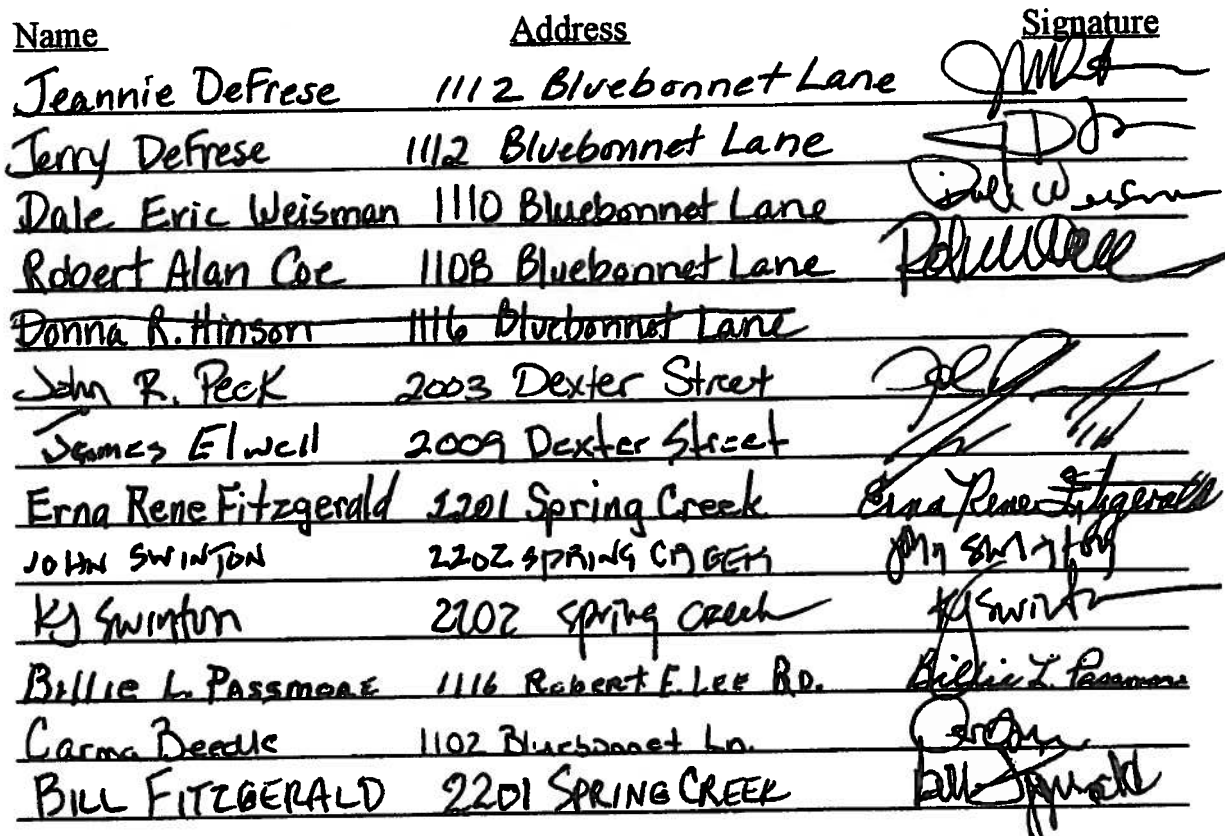 Name Address Signature
Jeannie DeFrese 1112 Bluebonnet Lane
Jerry DeFrese 1112 Bluebonnet Lane
Dale Eric Weisman 1110 Bluebonnet Lane Dale Weisman
Robert Alan Coe 1108 Bluebonnet Lane
Donna R. Hinson 1116 Bluebonnet Lane
John R. Peck 2003 Dexter Street
James Elwell 2009 Dexter Street
Erna Rene Fitzgerald 2201 Spring Creek Erna Rene Fitzgerald
JOHN SWINTON 2202 SPRING CREEK John Swinton
KJ Swinton 2202 Spring Creek KJ Swinton
Billie L. Passmore 1116 Robert E. Lee Rd. Billie L. Passmore
Carma Beedle 1102 Bluebonnet Ln.
BILL FITZGERALD 2201 SPRING CREEK Bill Fitzgerald